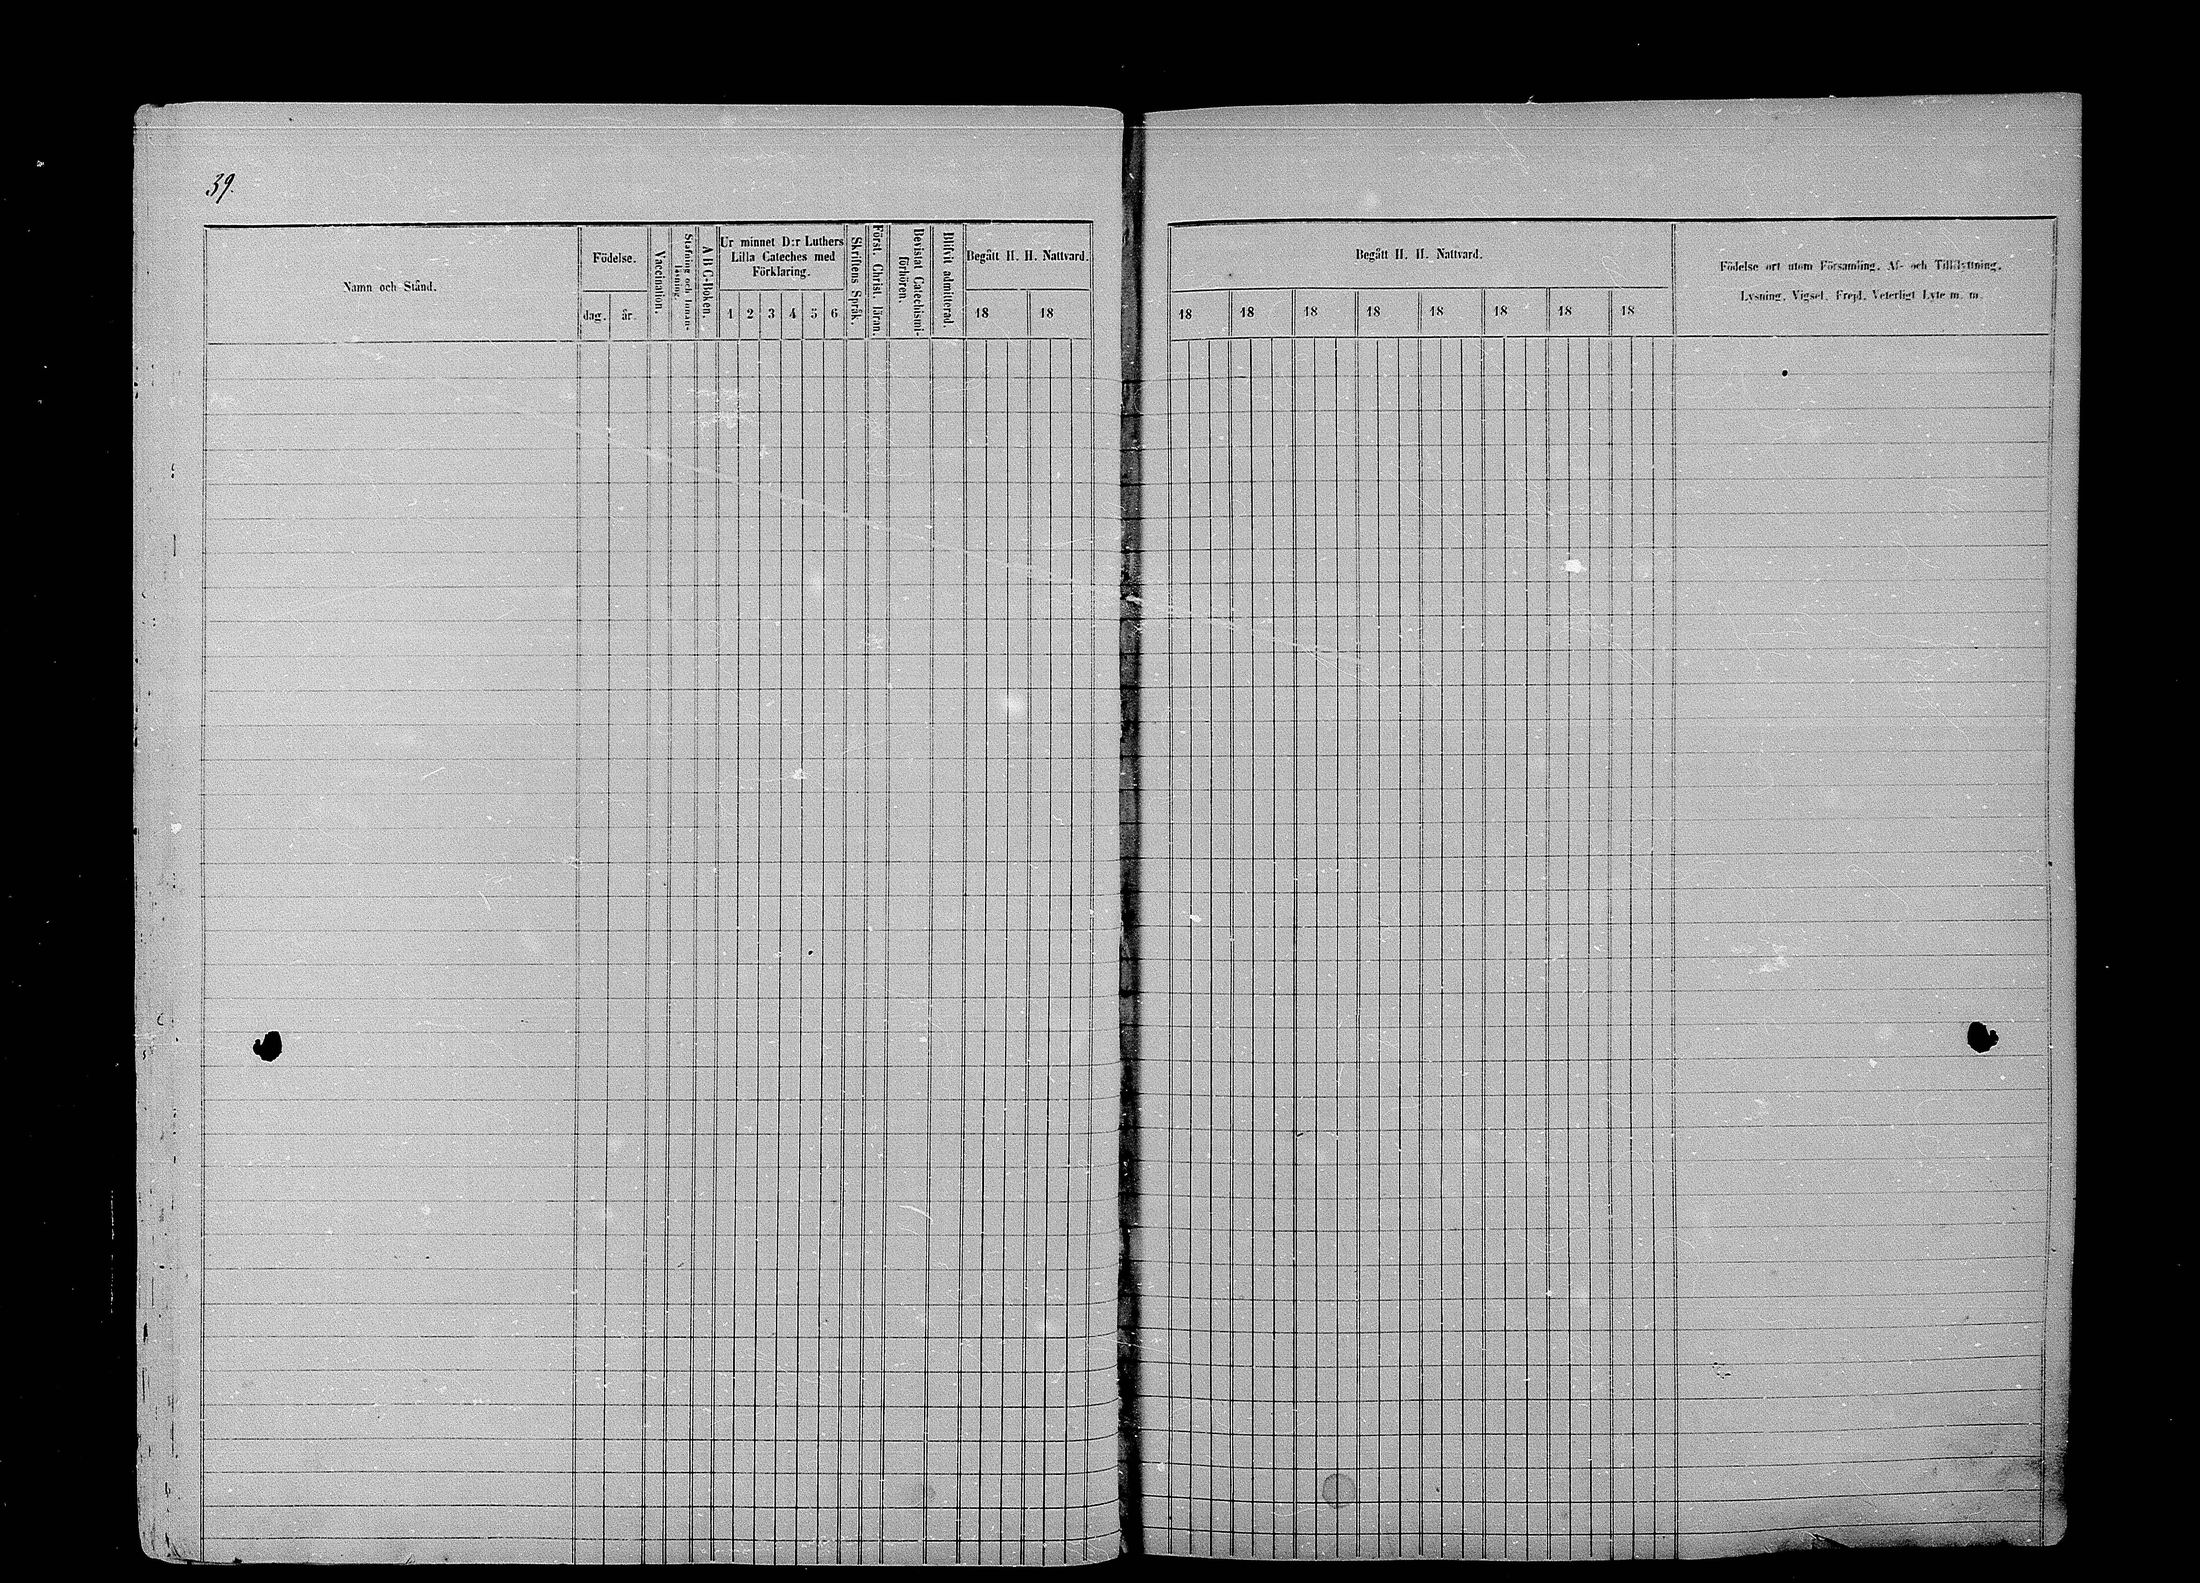 39.
Namn och Stånd.
Födelse.
dag.
år.
Vaccination.
Stafning och Innan-
läsning.
A B C-Boken.
Ur minnet D:r Luthers
Lilla Cateches med
Förklaring.
1 2 3 4 5 6
Skriftens Språk.
Först. Christ. läran.
Bevistat Catechismi-
förhören.
Blifvit admitterad.
Begått H. H. Nattvard.
18 18
Begått H. H. Nattvard.
18 18 18 18 18 18 18 18
Födelse ort utom Församling, Af- och Tillflyttning,
Lysning, Vigsel, Frejd, Veterligt Lyte m. m.